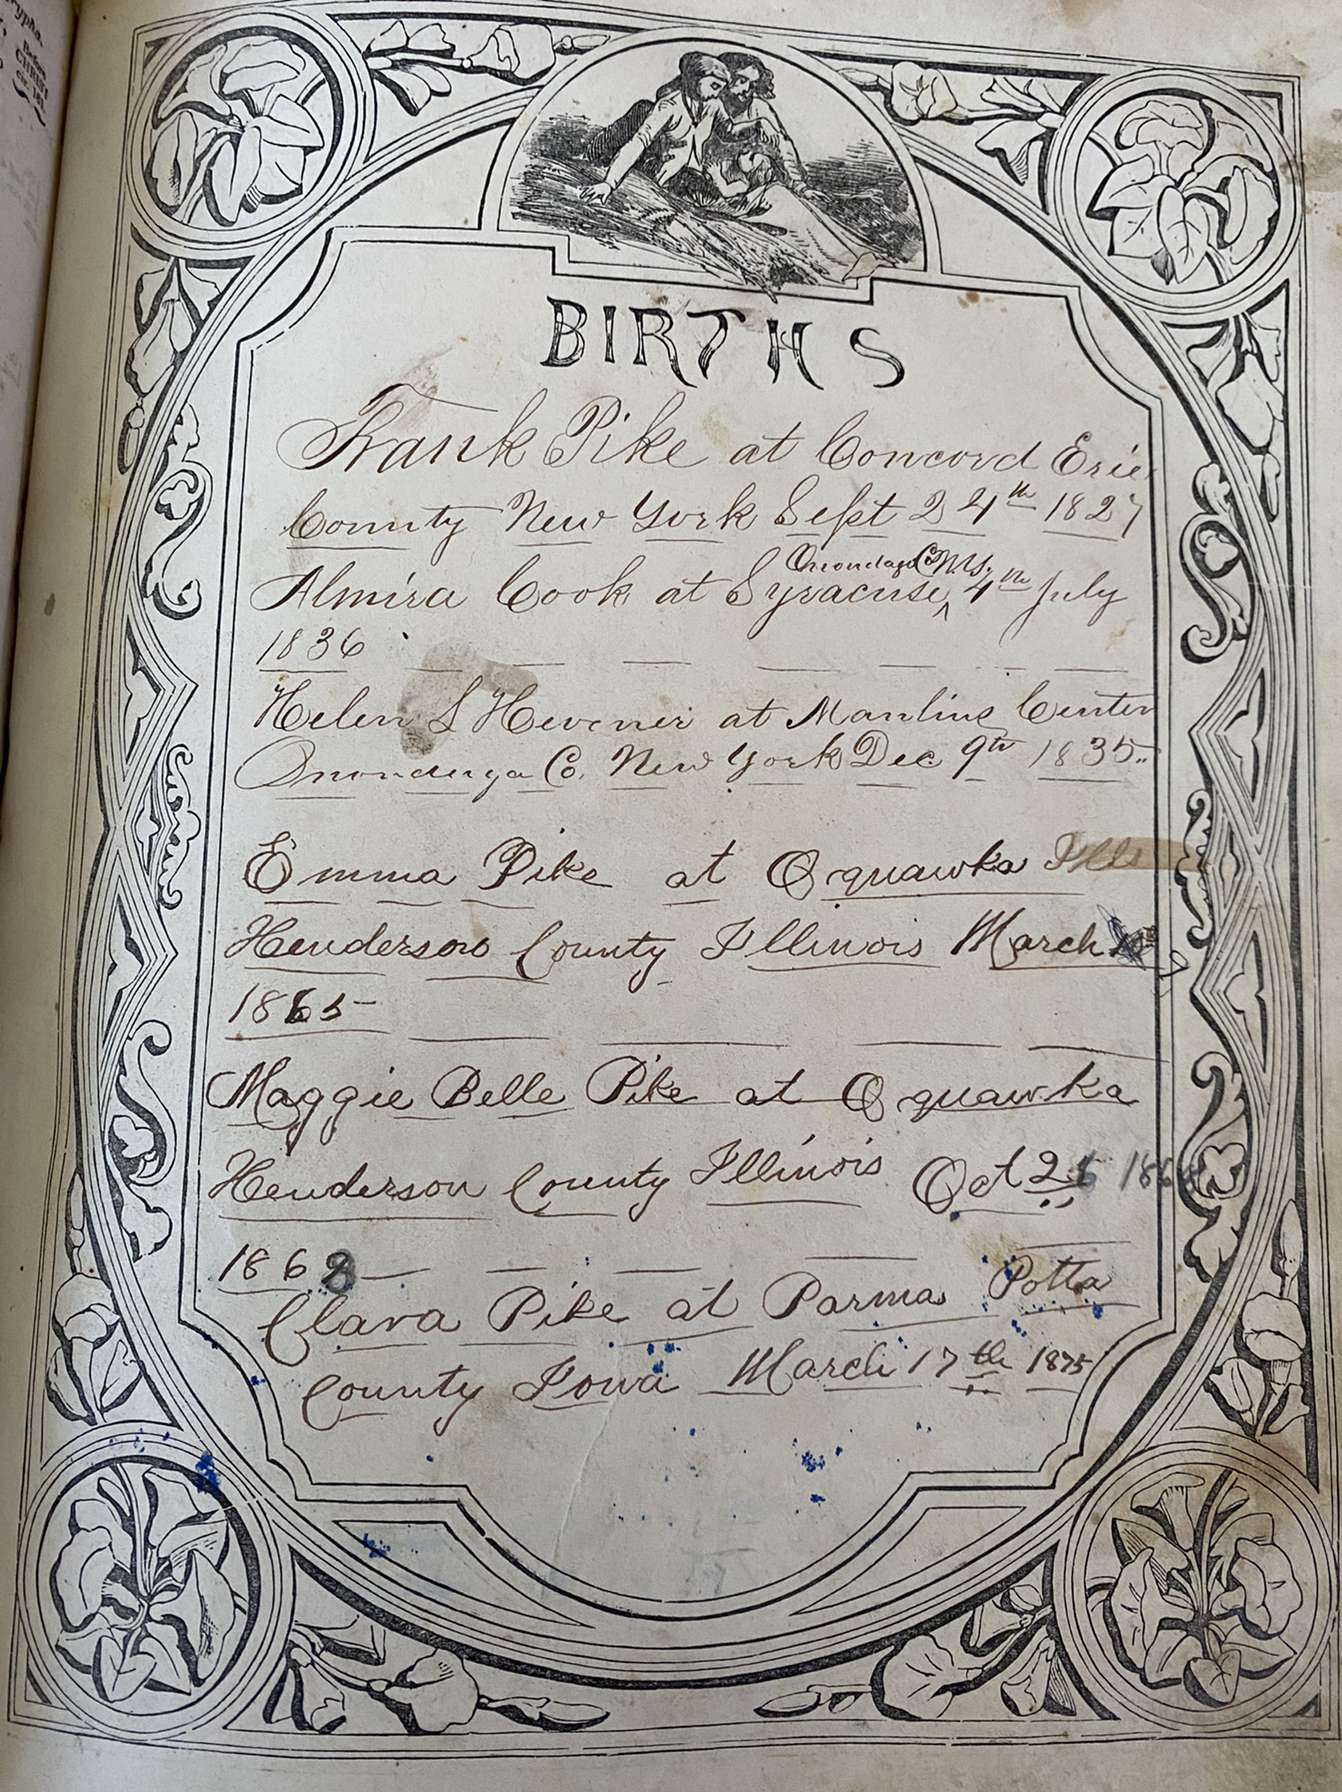 BIRTHS
Frank Pike at Concord Erie
County New York Sept 24th 1827
Onondaga Co N.Y.
Almira Cook at Syracuse, ^ 4th July
1836
Helen S Hevener at Manlius Center
Onondaga Co. New York Dec 9th 1835
Emma Pike at Oquawka Ills
Henderson County Illinois March
1865
Maggie Belle Pike at Oquawka
Henderson County Illinois Oct 26 1868
1868
Clara Pike at Parma Potta
County Iowa March 17th 1875